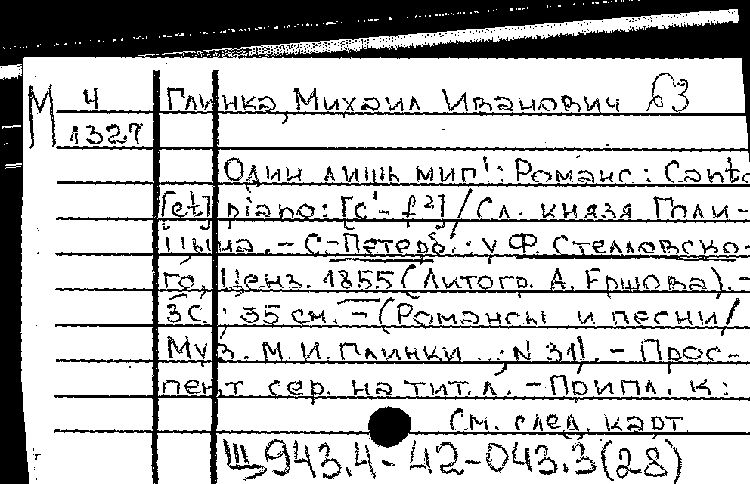 М 4 Глинка, Михаил Иванович Б3
1327
Один лишь миг!: Романс: Canto
[et] piano: [c¹- f²] / Сл. князя Голи-
цына. - С.-Петерб.: у Ф. Стелловско-
го, Ценз. 1855 (Литогр. А. Ершова). -
3 с.; 35 см. - (Романсы и песни /
Муз. М. И. Глинки ...; N 31). - Прос-
пект сер. на тит. л. - Припл. к:
См. след. карт.
Щ943.4-42-043.3(28)